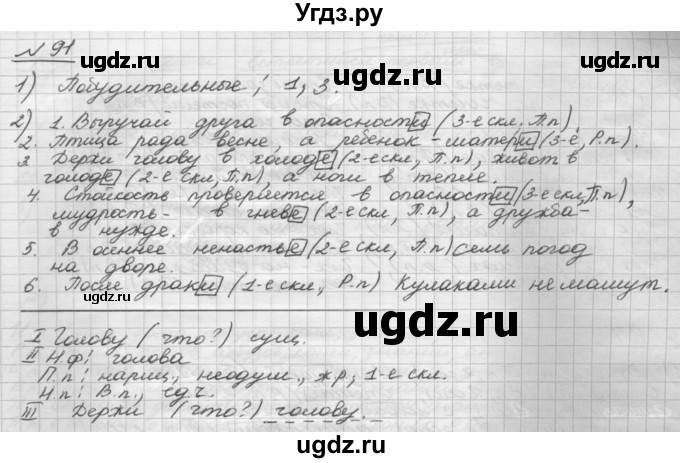 Угдз.ру
№ 91
1) Побудительные; 1, 3.
2) 1. Выручай друга в опасности (3-е скл, П.п),
2. Птица рада весне, а ребенок - матери (3-е, Р.п).
3 Держи голову в холоде (2-е скл, П.п), живот в
голоде (2-е скл, П.п), а ноги в тепле.
4. Стойкость проверяется в опасности (3-е скл, П.п),
мудрость - в гневе (2-е скл, П.п), а дружба -
в нужде.
5. В осеннее ненастье (2-е скл, П.п) семь погод
на дворе.
6. После драки (1-е скл, Р.п) Кулаками не машут.
I Голову (что?) сущ.
II Н.ф; голова
П.п; нариц., неодуш., жр; 1-е скл.
Н.п; В.п., ед.ч.
III Держи (что?) голову.
ugdz.ru
ugdz.ru
ugdz.ru
ugdz.ru
ugdz.ru
ugdz.ru
ugdz.ru
ugdz.ru
ugdz.ru
ugdz.ru
ugdz.ru